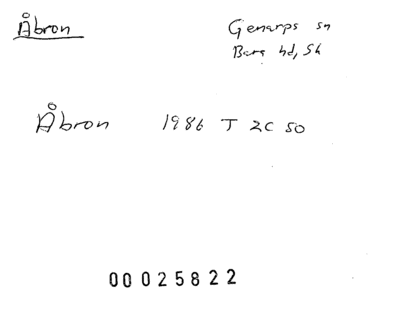 Åbron
Genarps sn
Bara hd, Sk
Åbron 1986 T 2C SO
00025822